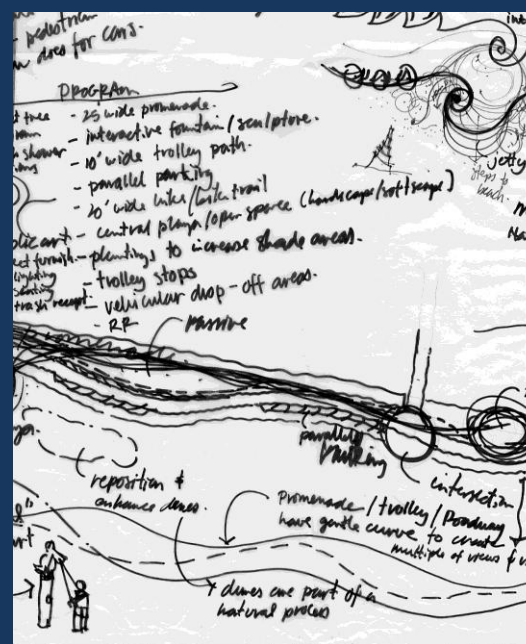 pedestrian
does for cars.
PROGRAM
- 25 wide promenade.
- interactive fountain/sculpture.
- 10' wide trolley path.
- parallel parking
- 20' wide hike/bike trail
- central plaza/open space (hardscape/softscape)
- plantings to increase shade areas.
- trolley stops
- vehicular drop-off areas.
- RR
tree
shower
furnish
lighting
seating
trash recept.
jetty
steps to
beach.
passive
parallel
parking
intersection
reposition &
enhance dunes.
Promenade/trolley/Roadway
have gentle curve to create
multiple of views &
* dunes are part of a
natural process